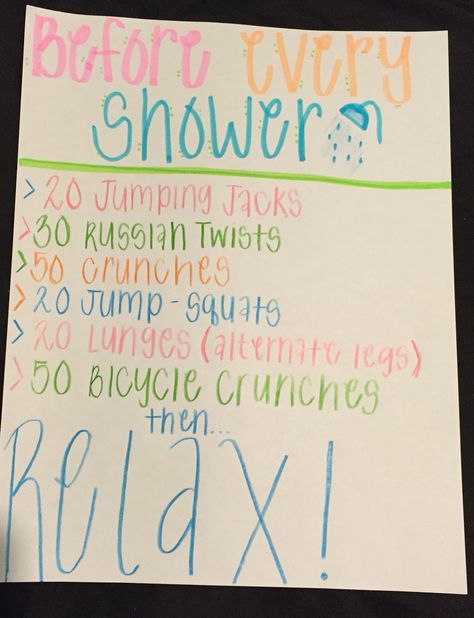 Before every
Shower
> 20 Jumping Jacks
> 30 Russian Twists
> 50 crunches
> 20 Jump-squats
> 20 Lunges (alternate legs)
> 50 Bicycle Crunches
then...
Relax!